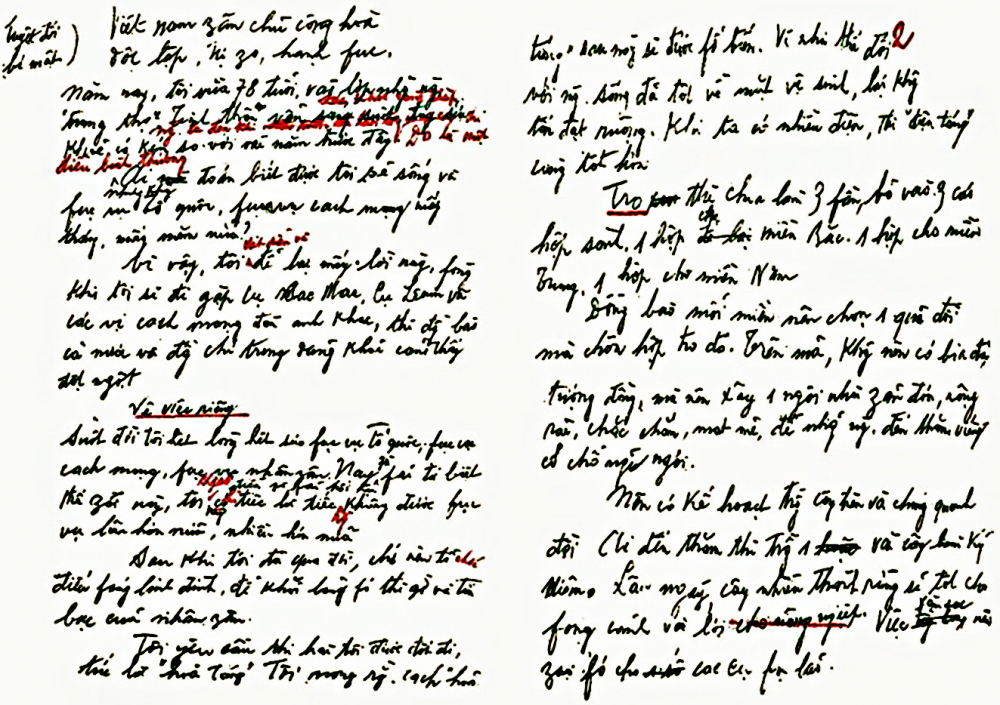 tuyệt đối
bí mật)
Việt nam zân chủ cộng hoà
độc lập, tự zo, hạnh fúc.
Năm nay, tôi vừa 78 tuổi, vào lớp những người
"trung thọ". Tinh thần vẫn sáng suốt,
so với vài năm trước đây. Đó là một
điều bình thường
Ai mà đoán biết được tôi sẽ sống và
fục vụ tổ quốc, fục vụ cách mạng mấy
tháng, mấy năm nữa?
Vì vậy, tôi để lại mấy lời này, fòng
khi tôi sẽ đi gặp cụ Các Mác, cụ Lênin và
các vị cách mạng đàn anh khác, thì đồng bào
cả nước và đồng chí trong đảng khỏi cảm thấy
đột ngột
Về việc riêng
Suốt đời tôi hết lòng hết sức fục vụ Tổ quốc, fục vụ
cách mạng, fục vụ nhân zân. Nay fải từ biệt
thế zới này, tôi tiếc là tiếc không được fục
vụ lâu hơn nữa, nhiều hơn nữa
Sau khi tôi đã qua đời, chớ nên tổ chức
điếu fúng linh đình, để khỏi lãng fí thì zờ và tiền
bạc của nhân zân.
Tôi yêu cầu thi hài tôi được đốt đi,
tức là "hoả táng" Tôi mong rằng cách hoả
táng" sau này sẽ được fổ biến. Vì như thế đối 2
với ng. sống đã tốt về mặt vệ sinh, lại khg
tốn đất ruộng. Khi ta có nhiều điện, thì "điện táng"
càng tốt hơn
Tro thì chia làm 3 fần, bỏ vào 3 cái
hộp sành. 1 hộp cho miền Bắc. 1 hộp cho miền
Trung. 1 hộp cho miền Nam
Đồng bào mỗi miền nên chọn 1 quả đồi
mà chôn hộp tro đó. Trên mả, khg nên có bia đá,
tượng đồng, mà nên xây 1 ngôi nhà zản đơn, rộng
rãi, chắc chắn, mát mẻ, để những ng. đến thăm viếng
có chỗ nghỉ ngơi.
Nên có kế hoạch trồng cây trên và chung quanh
đồi Ai đến thăm thì trồng 1 vài cây làm kỷ
niệm. Lâu ngày cây nhiều thành rừng sẽ tốt cho
fong cảnh và lợi cho nông nghiệp. Việc săn sóc nên
zao fó cho các cụ fụ lão.